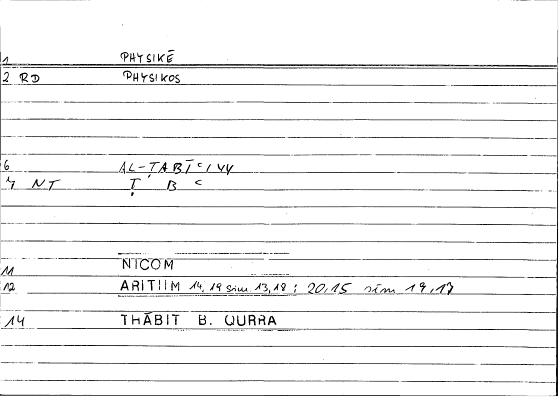 1 PHYSIKĒ
2 RD PHYSIKOS
6 AL-ṬABĪʿIYY
7 NT Ṭ B ʿ
11 NICOM
12 ARITIIM 14,19 sim. 13,18 ; 20,15 sim 19,17
14 THĀBIT B. QURRA